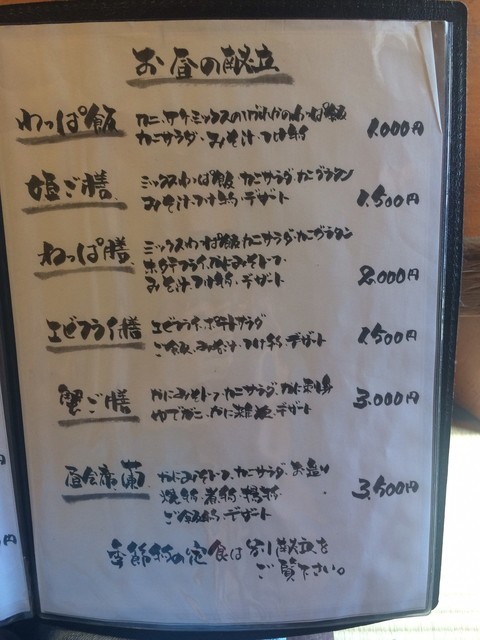 お昼の献立
わっぱ飯
カニ、サケ、ミックスのいずれかのわっぱ飯
かにサラダ・みそ汁・つけ物
1.000円
姫ご膳
ミックスわっぱ飯、かにサラダ・かにグラタン
みそ汁・つけ物・デザート
1.500円
わっぱ膳
ミックスわっぱ飯、かにサラダ・かにグラタン
ホタテフライ、かにみそトーフ
みそ汁・つけ物・デザート
2.000円
エビフライ膳
エビフライ、ポテトサラダ
ご飯、みそ汁・つけ物・デザート
1.500円
蟹ご膳
かにみそトーフ、かにサラダ、かに
ゆでがに、かに雑炊、デザート
3.000円
昼会席 蘭
かにみそトーフ、かにサラダ、お造り
焼物・煮物・揚物
ご飯物・デザート
3.500円
季節物の定食は別献立を
ご覧下さい。
円
円